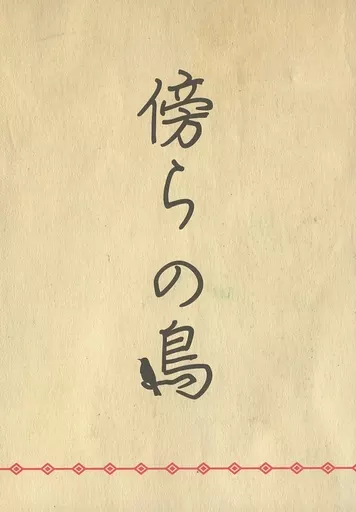 傍らの鳥